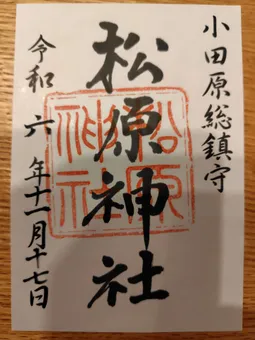 小田原総鎮守
松原神社
松原
神社
令和六年十一月十七日